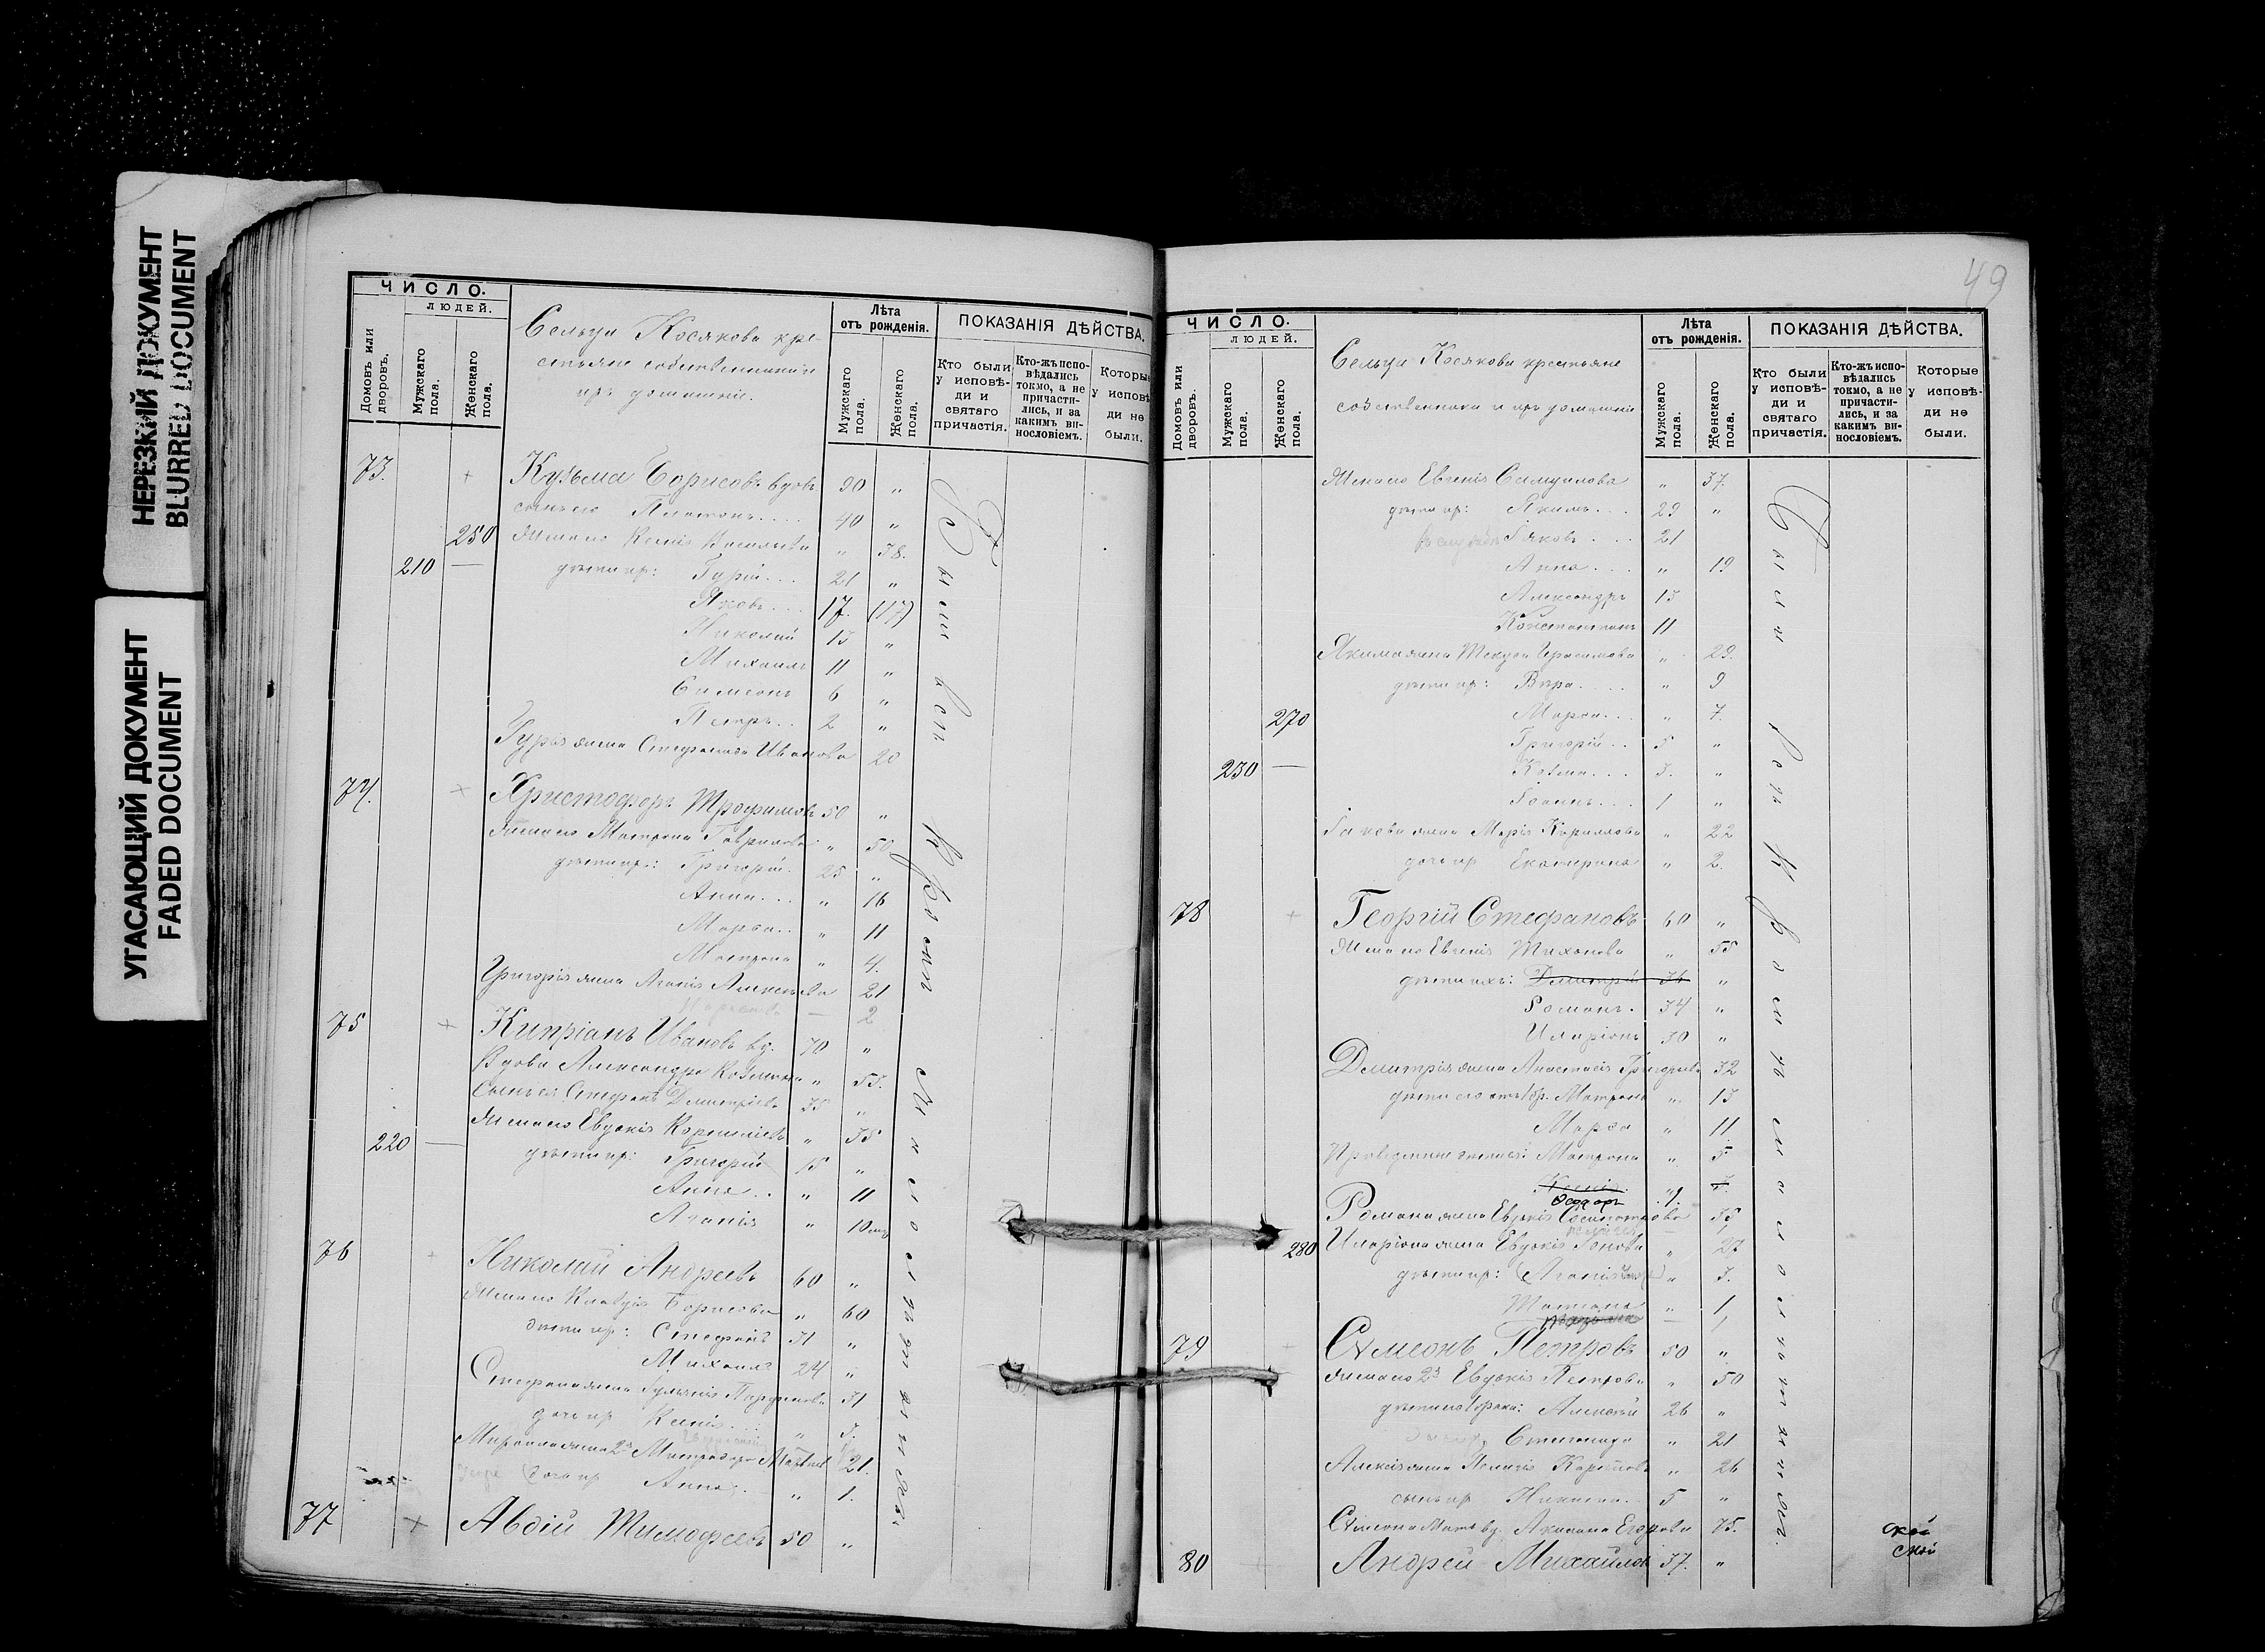 НЕРЕЗКИЙ ДОКУМЕНТ
BLURRED DOCUMENT
УГАСАЮЩИЙ ДОКУМЕНТ
FADED DOCUMENT
ЧИСЛО.
ЛЮДЕЙ.
Домовъ или дворовъ.
Мужскаго пола.
Женскаго пола.
Сельца Косякова кре-
стьяне собственники и
ихъ домашніе.
Лѣта
отъ рожденія.
Мужскаго пола.
Женскаго пола.
ПОКАЗАНІЯ ДѢЙСТВА.
Кто были у исповѣ-ди и святаго причастія.
Кто-жъ испо-вѣдались токмо, а не причасти-лись, и за какимъ ви-нословіемъ.
Которые у исповѣ-ди не были.
73. Кузьма Борисовъ вдовъ 90 „
сынъ его Платонъ.... 40 „
250 Жена его Ксенія Васильева „ 38.
210 — дѣти их: Гурій... 21 „
Яковъ... 17. (17)
Николай 13 „
Михаилъ 11 „
Симеонъ 6 „
Петръ.. 2 „
Гурія жена Стефанида Иванова 20
74. Христофоръ Трофимовъ 50 „
Жена его Матрона Гаврилова „ 50
дѣти их: Григорій. 25 „
Анна... „ 16
Марѳа.. „ 11
Матрона „ 4.
Григорія жена Агапія Алексѣева 21
— 2
75 Кипріанъ Ивановъ вд. 70 „
Вдова Александра Козмина „ 53.
Сынъ ея Стефанъ Димитріевъ 35 „
Жена его Евдокія Корниліева „ 35
220 — дѣти их: Григорій 15 „
Анна.. „ 11
Агапія „ 10 мѣ
76 Николай Андреевъ 60 „
Жена его Клавдія Борисова „ 60
дѣти их: Стефанъ 31 „
Михаилъ 24 „
Стефана жена Гуліанія Парфенова 31
дочь их Ксенія... „ 3.
Михаила жена 2я Матрона 21.
дочь их Анна.. „ 1.
77 Авдій Тимофеевъ 50 „
Были всѣ кромѣ малолѣтнихъ
49
ЧИСЛО.
ЛЮДЕЙ.
Домовъ или дворовъ.
Мужскаго пола.
Женскаго пола.
Сельца Косякова крестьяне
собственники и ихъ домашніе
Лѣта
отъ рожденія.
Мужскаго пола.
Женскаго пола.
ПОКАЗАНІЯ ДѢЙСТВА.
Кто были у исповѣ-ди и святаго причастія.
Кто-жъ испо-вѣдались токмо, а не причасти-лись, и за какимъ ви-нословіемъ.
Которые у исповѣ-ди не были.
Жена его Евгенія Самуилова „ 37.
дѣти их: Якимъ... 29 „
Іаковъ.... 21
Анна... „ 19
Александръ 13
Константинъ 11
Якима жена Текуса Герасимова „ 29.
дѣти их: Вѣра.... „ 9
270 Марѳа... „ 7.
Григорій.. 5 „
230 — Козма... 3. „
Іоаннъ... 1 „
Іакова жена Марія Кириллова „ 22
дочь их Екатерина „ 2.
78 Георгій Стефановъ 60 „
Жена его Евгенія Тихонова „ 55
дѣти ихъ: Димитрій 36 „
Романъ. 34 „
Иларіонъ 30 „
Димитрія жена Анастасія Григорьева 32
дѣти его отъ 1бр. Матрона „ 13
Марѳа „ 11
Матрона „ 5
Ксенія. „ 3.
Ѳедоръ 1.
Романа жена Евдокія 35
280 Иларіона жена Евдокія Іонова „ 27
дѣти их: (Агапія) „ 3.
Татіана „ 1
— 1
79 Симеонъ Петровъ 50 „
Жена его 2я Евдокія Петрова „ 50
дѣти его 1брака: Алексѣй 26 „
Степанида „ 21
Алексія жена Пелагія Карпова „ 26
сынъ их Никита.. 5 „
Симеона Мать вд. Акилина Егорова 75.
80 Андрей Михайловъ 37. „
Были всѣ кромѣ малолѣтнихъ.